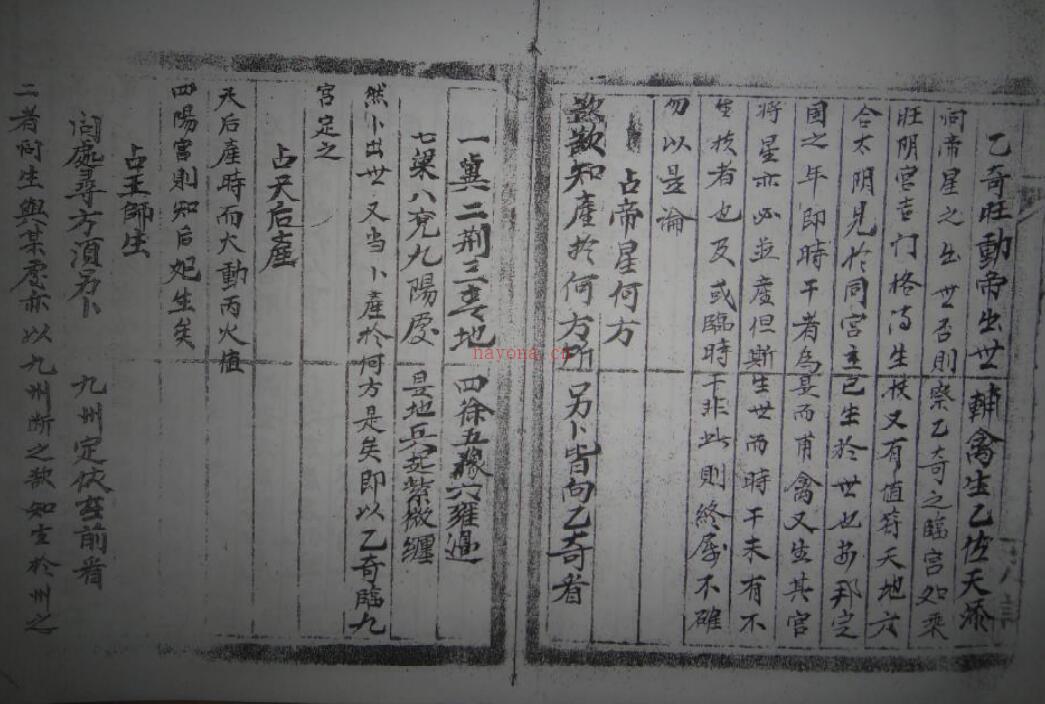 乙奇旺動帝出世 輔禽生乙佐天添
問帝星之出世否則察乙奇之臨宮如乘
旺明宮吉门格汤生扶又有值符天地六
合太阴見於同宮主已生於世也如邦定
國之年即時干者為君而甫禽又生其宮
將星亦必並產但斯生世而時干未有不
生扶者也及或臨時干非此則終屬不確
勿以是論
占帝星何方
欲知產於何方所 另卜皆向乙奇看
一冀二荆三青地 四徐五豫六雍過
七梁八兖九陽處 是地兵起紫微纏
然卜出世又当卜產於何方是矣即以乙奇臨九
宮定之
占天后產
天后產時而大動丙火值
四陽宮則知后妃生矣
占王師生
問處尋方須另卜 九州定依奇前看
二者何生與某處亦以九州断之欲知生於州之
nayona.cn